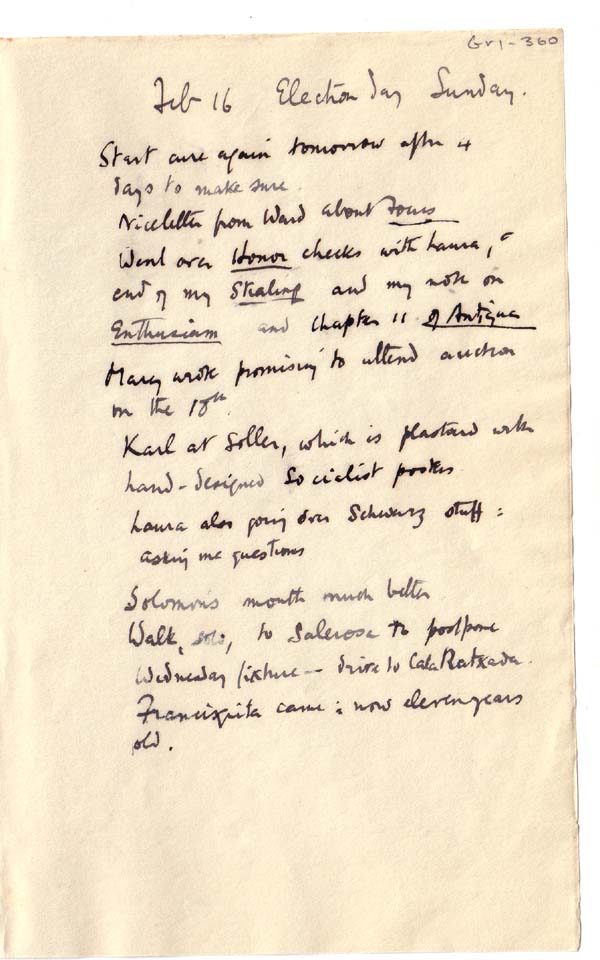 Gr1-360
Feb 16 Election day Sunday.
Start cure again tomorrow after 4
days to make sure.
Nice letter from Ward about Foxes
Went over Honor checks with Laura,
end of my Stealing and my note on
Enthusiasm and Chapter 11 of Antigua
Mary wrote promising to attend auction
on the 18th.
Karl at Soller, which is plastered with
hand-designed Socialist posters
Laura also going over Schwarz stuff:
asking me questions
Solomon's mouth much better
Walk, solo, to Salerosa to postpone
Wednesday fixture — drive to Cala Ratxada.
Francisquita came: now eleven years
old.